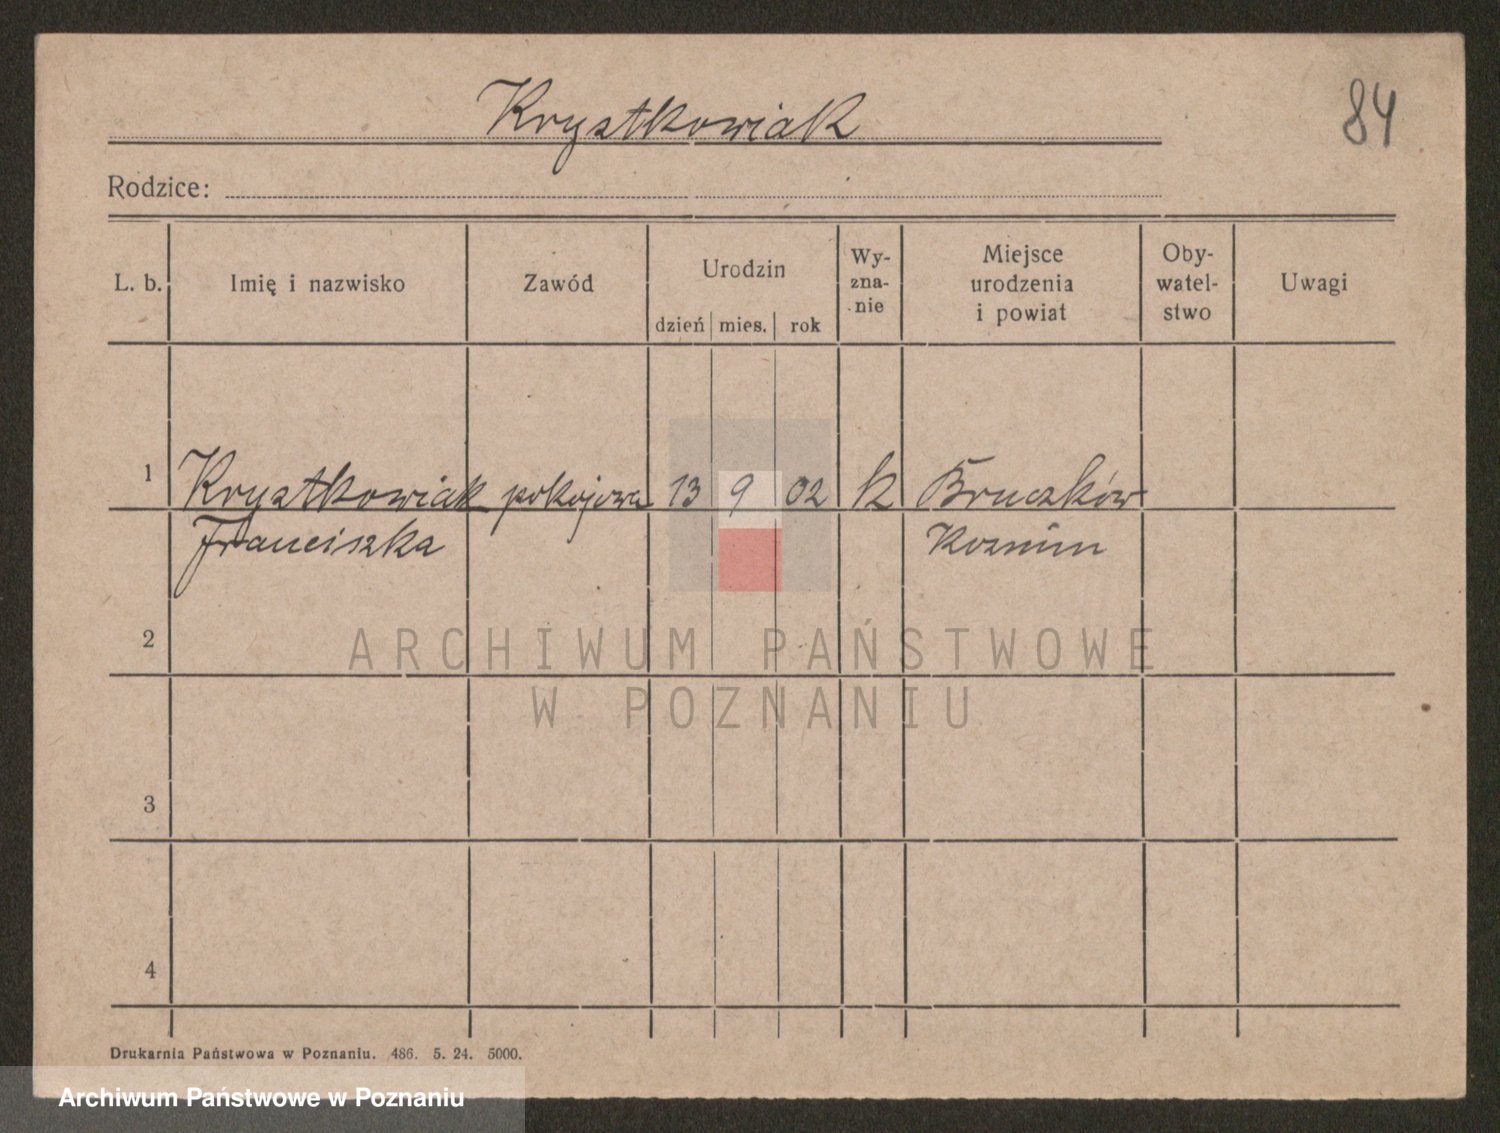 Krystkowiak
84
Rodzice:
L. b. Imię i nazwisko Zawód Urodzin dzień mies. rok Wy-zna-nie Miejsce urodzenia i powiat Oby-watel-stwo Uwagi
1 Krystkowiak pokojowa 13 9 02 k Bruczków
Franciszka Kozmin
2
ARCHIWUM PAŃSTWOWE
W POZNANIU
3
4
Drukarnia Państwowa w Poznaniu. 486. 5. 24. 5000.
Archiwum Państwowe w Poznaniu